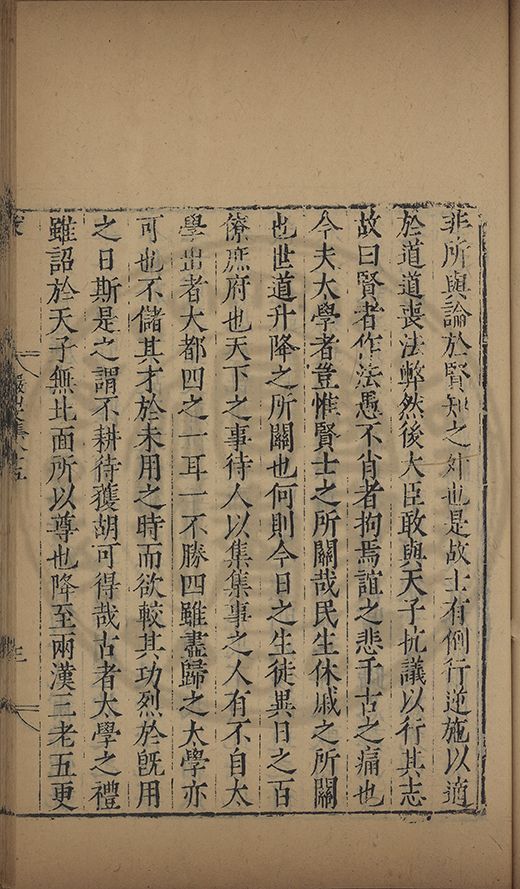 非所與論於賢知之外也是故士有倒行逆施以適
於道道喪法弊然後大臣敢與天子抗議以行其志
故曰賢者作法愚不肖者拘焉誼之悲千古之痛也
今夫大學者豈惟賢士之所關哉民生休戚之所關
也世道升降之所關也何則今日之生徒異日之百
僚庶府也天下之事待人以集集事之人有不自太
學出者大都四之一耳一不勝四雖盡歸之大學亦
可也不儲其才於未用之時而欲較其功烈於旣用
之日斯是之謂不耕待獲胡可得哉古者大學之禮
雖詔於天子無北面所以尊也降至兩漢三老五更